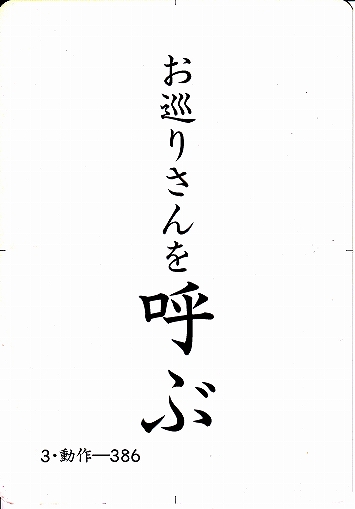 お巡りさんを呼ぶ
3・動作―386